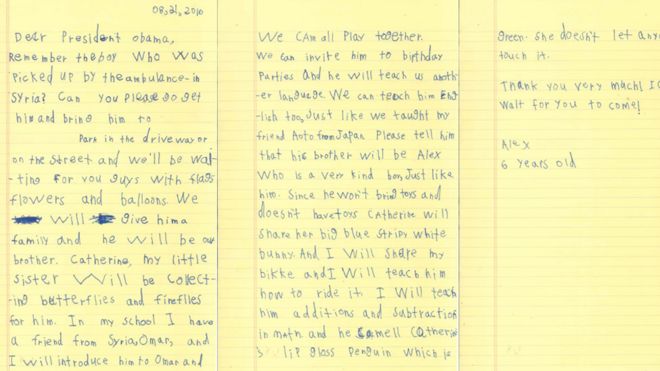 08,21,2010
Dear President obama,
Remember the boy who was
picked up by the ambulance in
Syria? Can you please go get
him and bring him to
Park in the driveway or
on the street and we'll be wai-
ting for you guys with flags
flowers and balloons. We
will give him a
family and he will be our
brother. Catherine, my little
sister will be collect-
ing butterflies and fireflies
for him. In my school I have
a friend from Syria, Omar, and
I will introduce him to Omar and
We can all play together.
We can invite him to birthday
parties and he will teach us anoth-
er language. We can teach him Eng
lish too, Just like we taught my
friend Aoto from Japan. Please tell him
that his brother will be Alex
who is a very kind boy, Just like
him. Since he won't bring toys and
doesn't have toys Catherine will
share her big blue stripy white
bunny. And I will share my
bikke and I will teach him
how to ride it. I will teach
him additions and subtraction
in math and he smell Catherine
's lip gloss penguin which is
green. She doesn't let any
touch it.
Thank you very much! I
wait for you to come!
Alex
6 years old